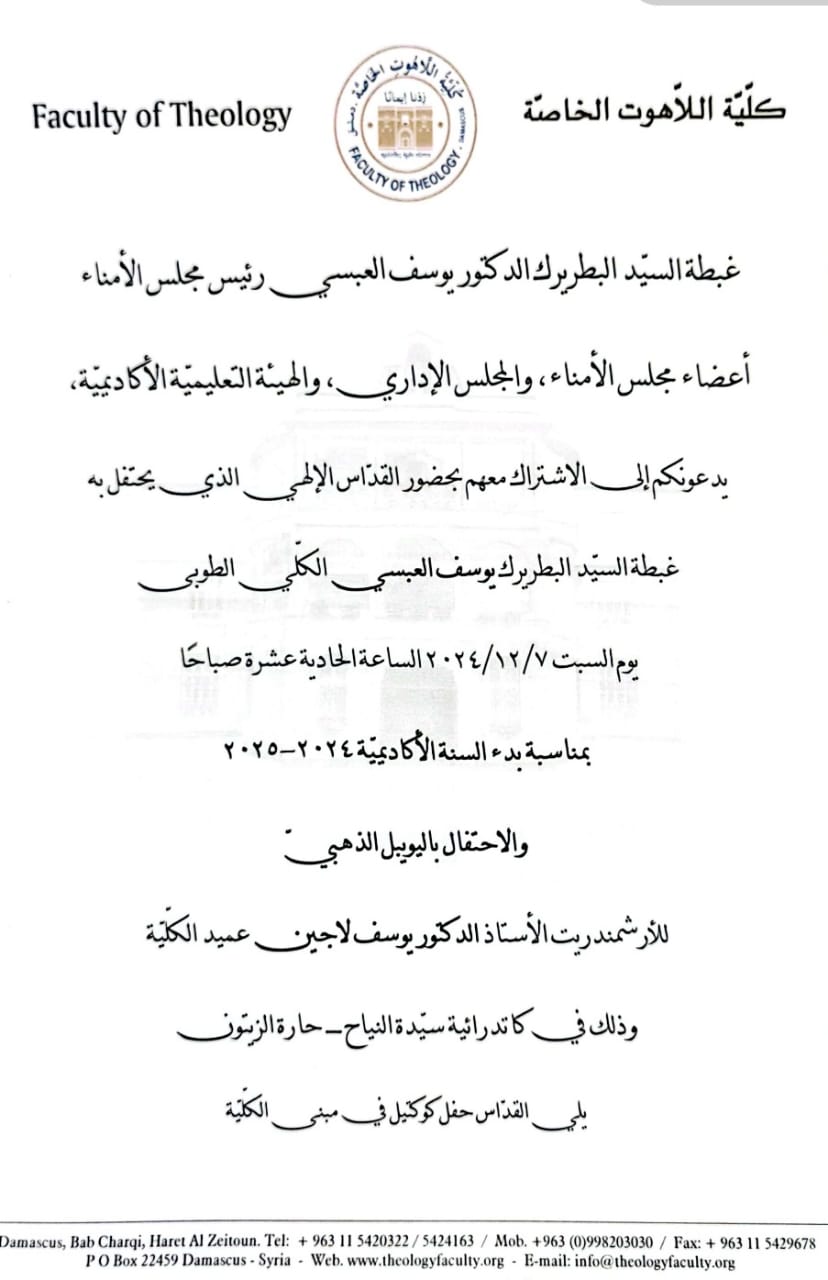 Faculty of Theology
كلّيّة اللاّهوت الخاصّة
كليّة اللاّهوت الخاصّة - دمشق
زدنا إيمانًا
FACULTY OF THEOLOGY - DAMASCUS
غبطة السيّد البطريرك الدكتور يوسف العبسي رئيس مجلس الأمناء
أعضاء مجلس الأمناء، والمجلس الإداري، والهيئة التعليميّة الأكاديميّة،
يدعونكم إلى الاشتراك معهم بحضور القدّاس الإلهي الذي يحتفل به
غبطة السيّد البطريرك يوسف العبسي الكلّي الطوبى
يوم السبت ٢٠٢٤/١٢/٧ الساعة الحادية عشرة صباحًا
بمناسبة بدء السنة الأكاديميّة ٢٠٢٤–٢٠٢٥
والاحتفال باليوبيل الذهبيّ
للأرشمندريت الأستاذ الدكتور يوسف لاجين عميد الكلّيّة
وذلك في كاتدرائية سيّدة النياح – حارة الزيتون
يلي القدّاس حفل كوكتيل في مبنى الكلّيّة
Damascus, Bab Charqi, Haret Al Zeitoun. Tel: + 963 11 5420322 / 5424163 / Mob. +963 (0)998203030 / Fax: + 963 11 5429678
P O Box 22459 Damascus - Syria - Web. www.theologyfaculty.org - E-mail: info@theologyfaculty.org